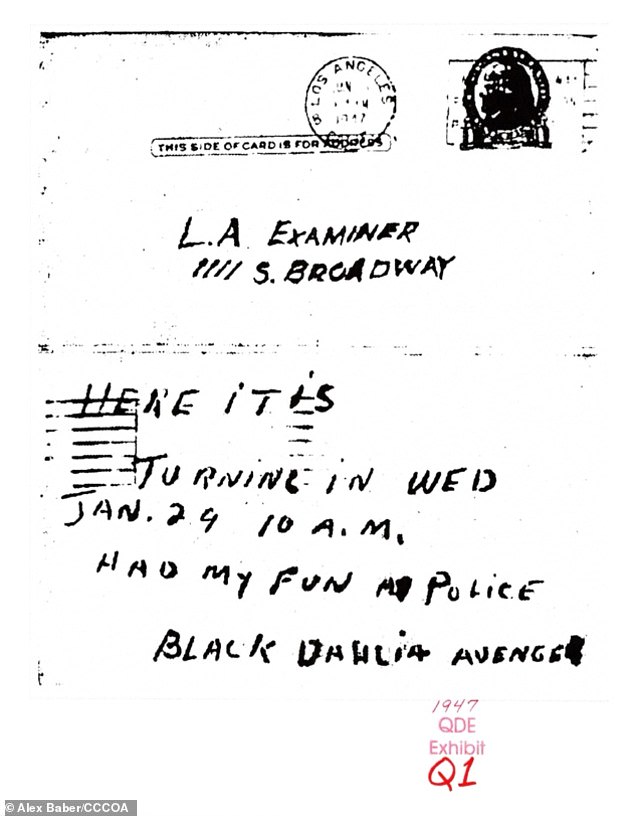 LOS ANGELES
1947
THIS SIDE OF CARD IS FOR ADDRESS
L.A. EXAMINER
1111 S. BROADWAY
HERE iT iS
TURNING iN WED
JAN. 29 10 A.M.
HAD MY FUN AT POLiCE
BLACK DAHLiA AVENGER
1947
QDE
Exhibit
Q1
© Alex Baber/CCCOA